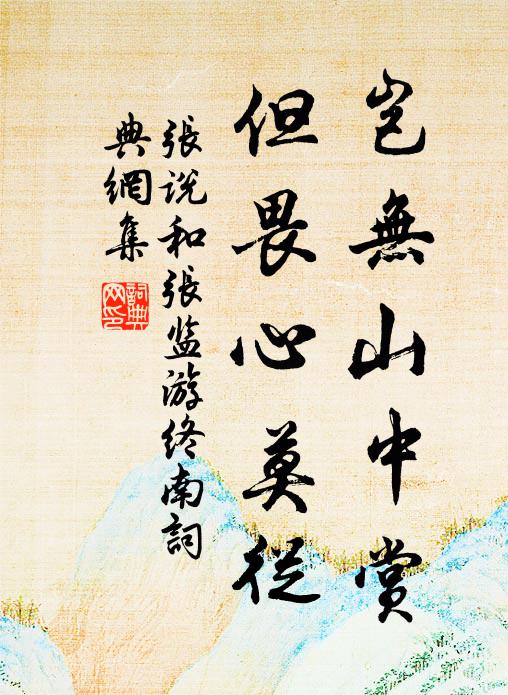 豈無山中賞
但畏心莫從
張說和張监游终南詞
典網集
詞典
网印